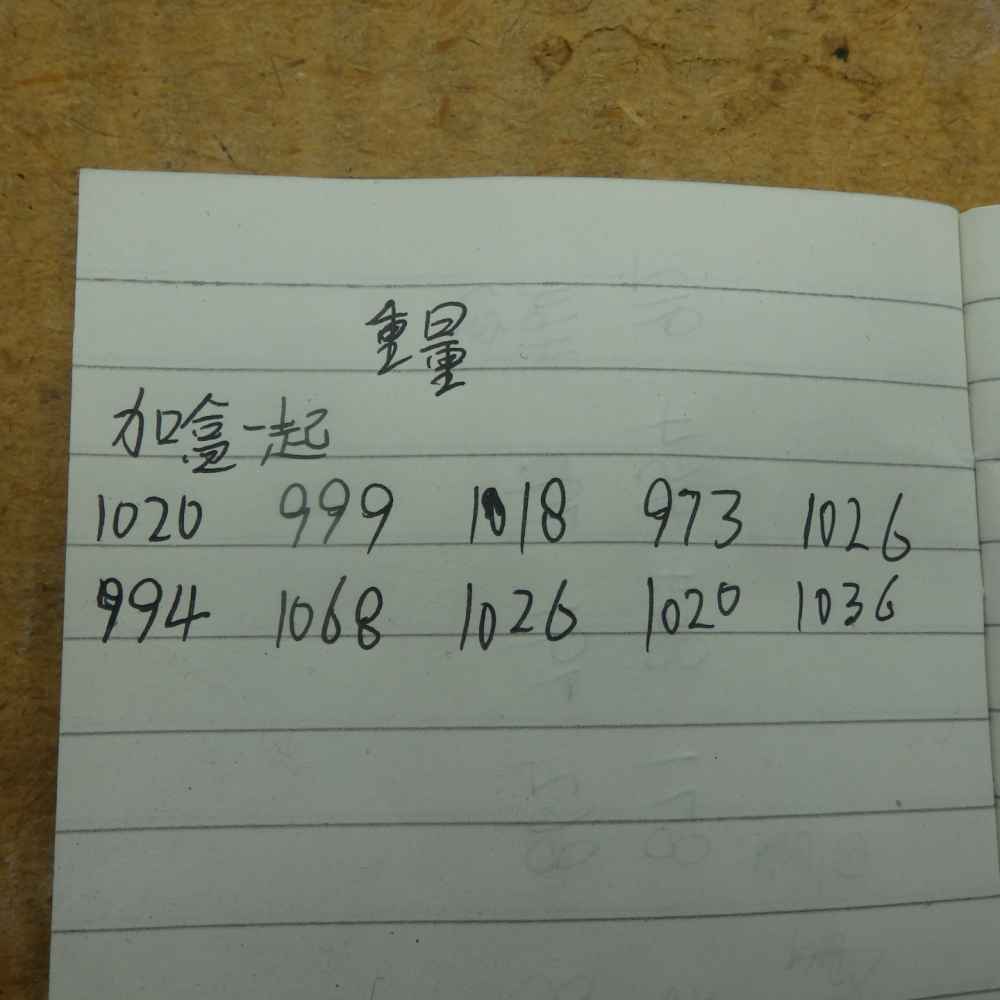 重量
加盒一起
1020 999 1018 973 1026
994 1068 1026 1020 1036